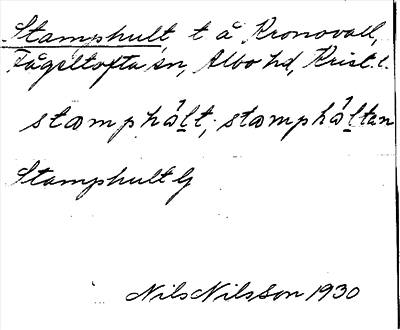 Stamphult, t å Kronovall,
Fågeltofta sn, Albo hd, Krist. l.
stamphål̲t; stamphål̲tan
Stamphult G
Nils Nilsson 1930